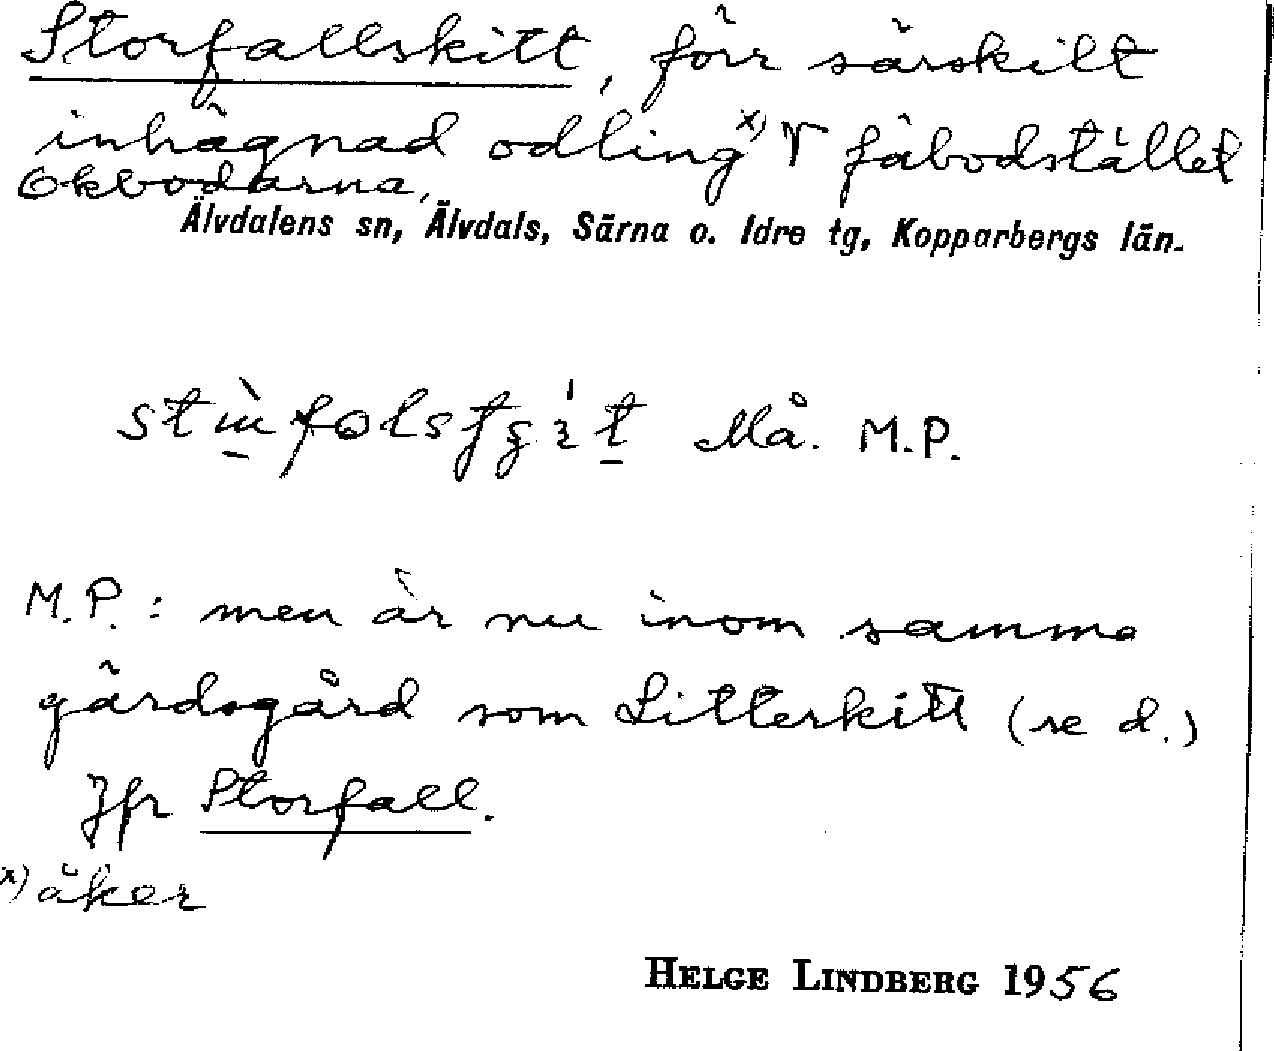 Storfallskitt, förr särskilt
inhägnad odling x) r fäbodstället
Okbodarna,
Älvdalens sn, Älvdals, Särna o. Idre tg, Kopparbergs län.
Må. M.P.
M.P.: men är nu inom samma
gärdsgård som Litterkitt (se d.)
Jfr Storfall.
x) åker
HELGE LINDBERG 1956